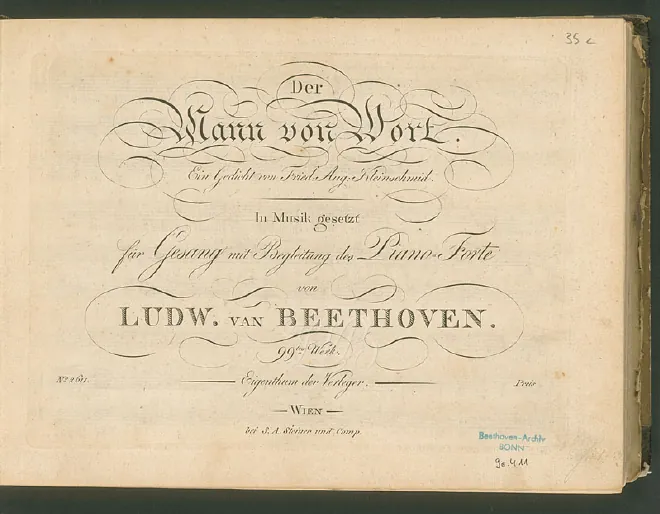 35 c
Der
Mann von Wort.
Ein Gedicht von Fried. Aug. Kleinschmid.
In Musik gesetzt
für Gesang mit Begleitung des Piano-Forte
von
LUDW. VAN BEETHOVEN.
99tes Werk.
Eigenthum der Verleger.
Preis
WIEN
bei S. A. Steiner und Comp.
Beethoven-Archiv
BONN